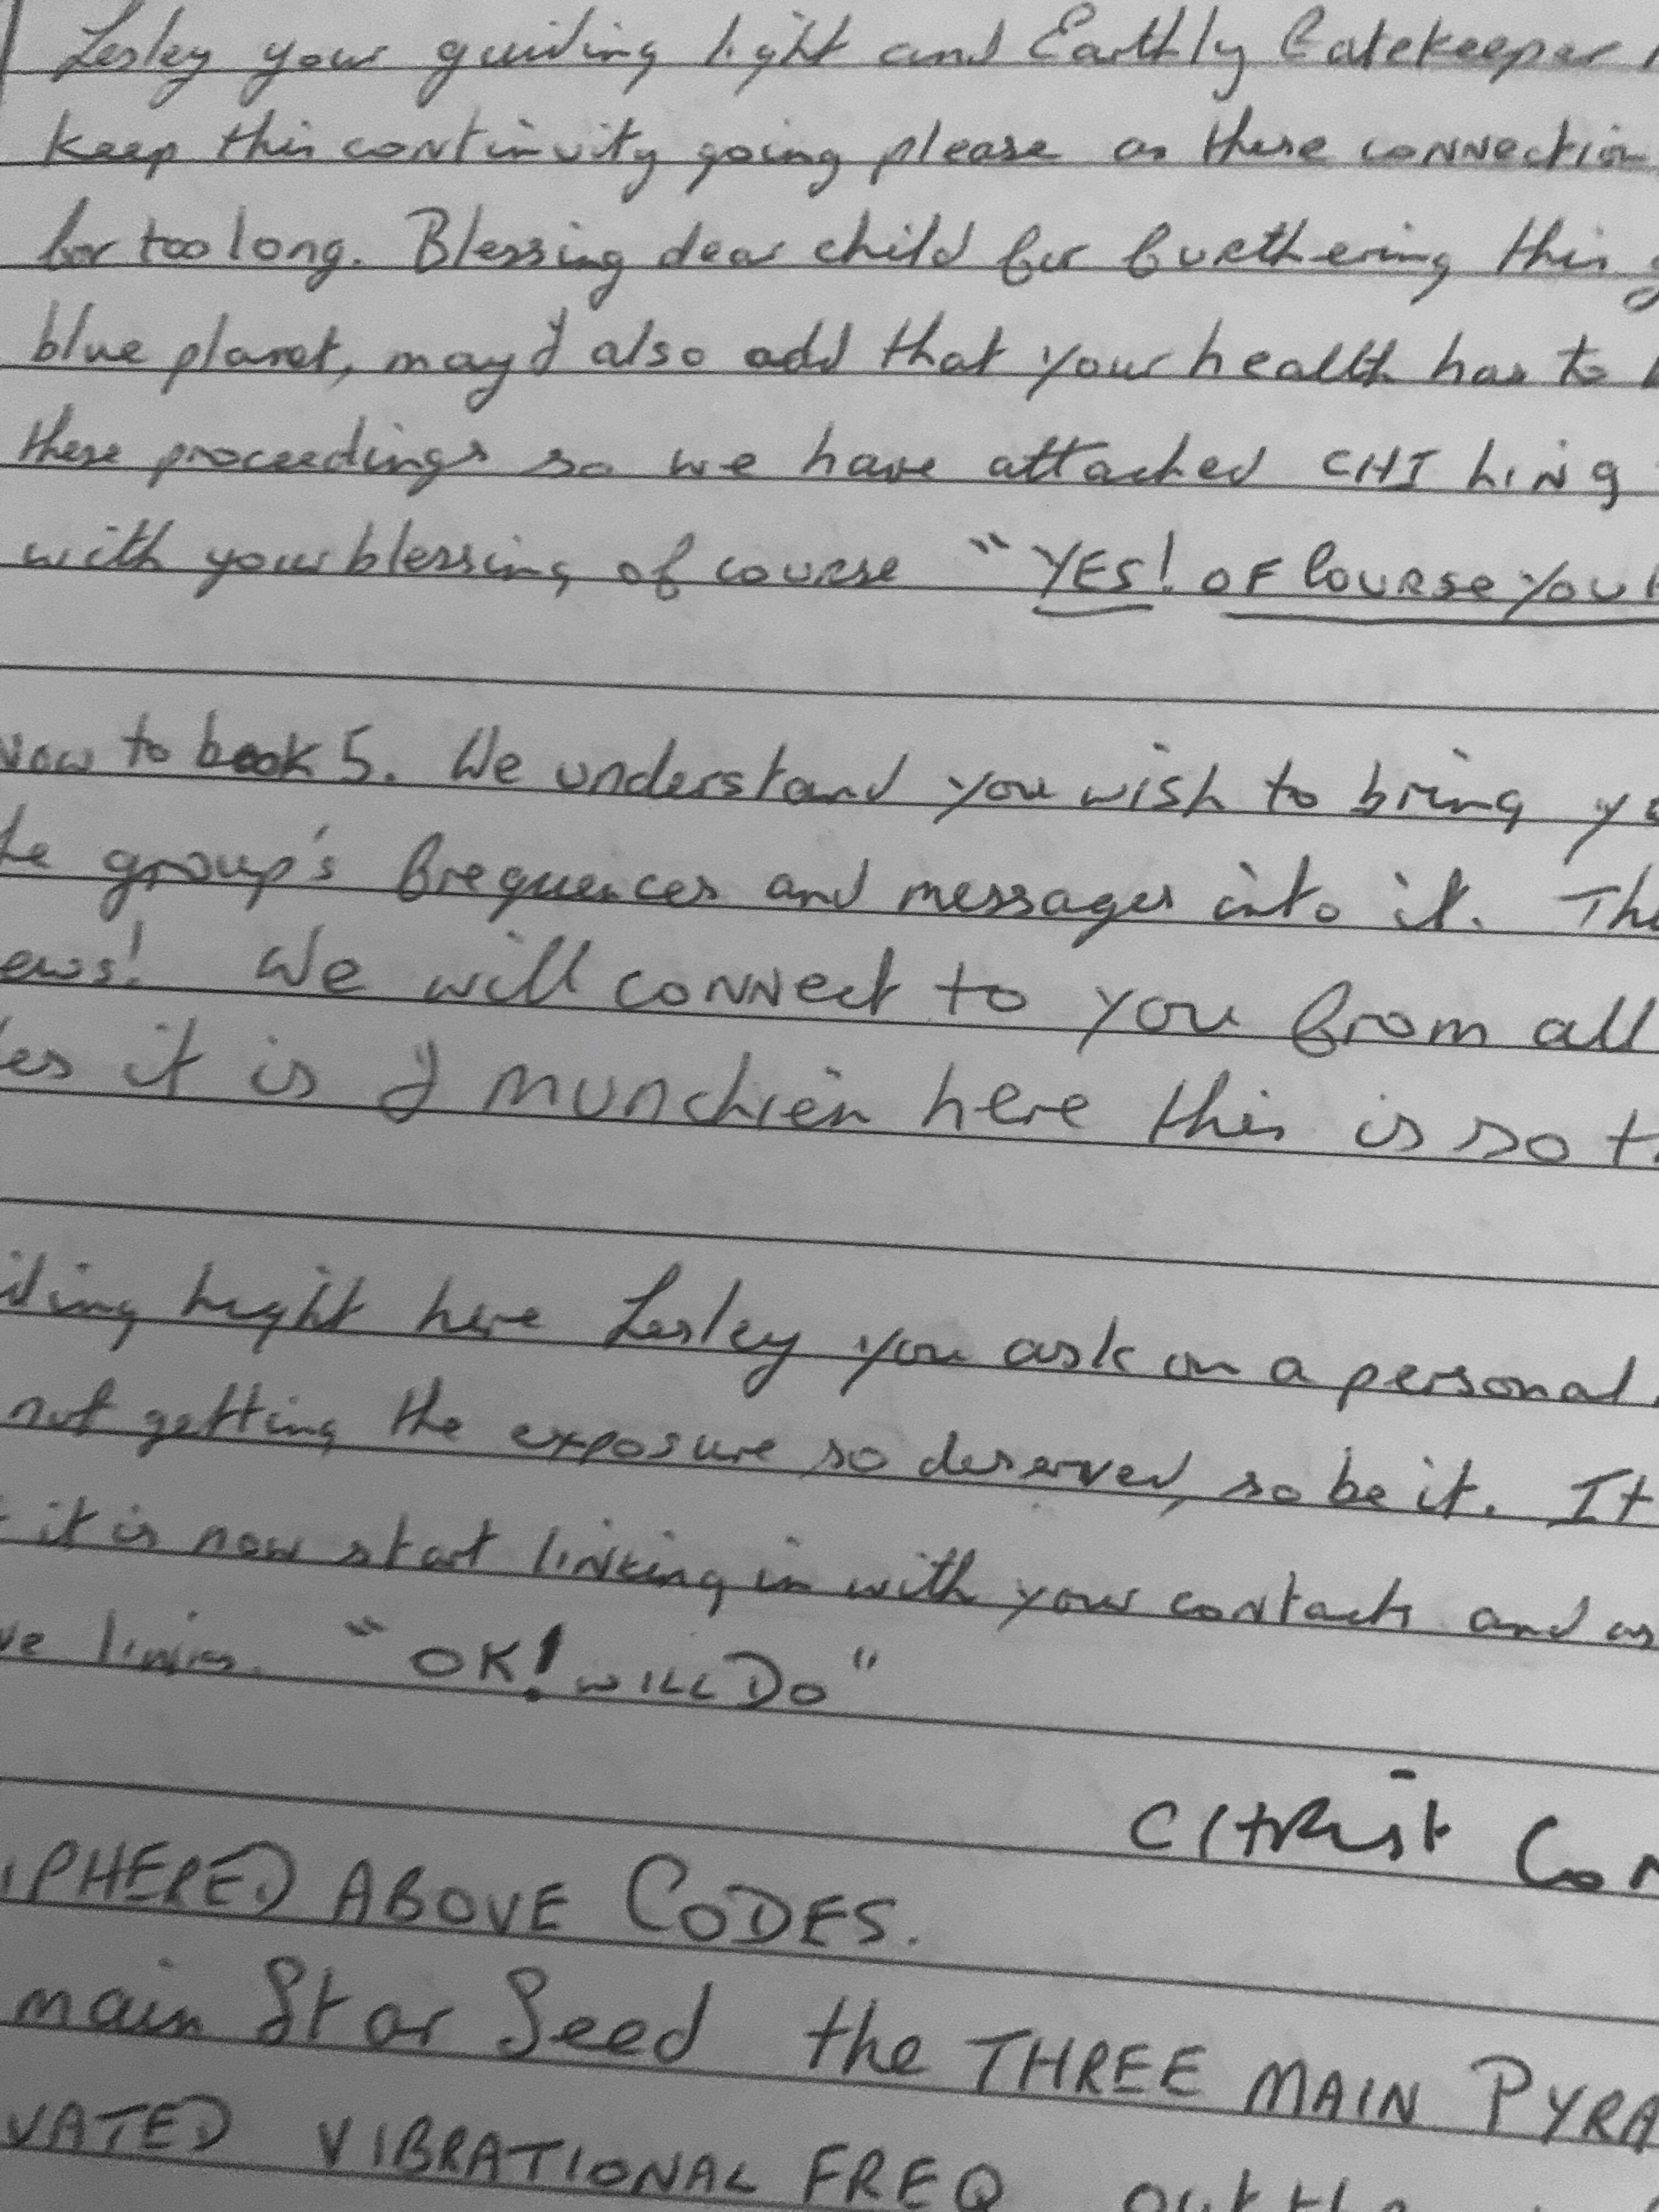 Lesley your guiding light and Earthly Gatekeeper
keep this continuity going please as these connection
for too long. Blessing dear child for furthering this
blue planet, may I also add that your health has to
these proceedings so we have attached CHI LiNg
with your blessing of course "YES! OF COURSE YOU
Now to book 5. We understand you wish to bring yo
group's frequences and messages into it. The
ews! We will connect to you from all
it is I munchien here this is so
iding light here Lesley you ask on a personal
not getting the exposure so deserved, so be it. It
it is now start linking in with your contacts and as
ve links. "OK! WILL DO"
CHRist Con
IPHERED ABOVE CODES.
main Star Seed the THREE MAIN PYRA
VATED VIBRATIONAL FREQ out the